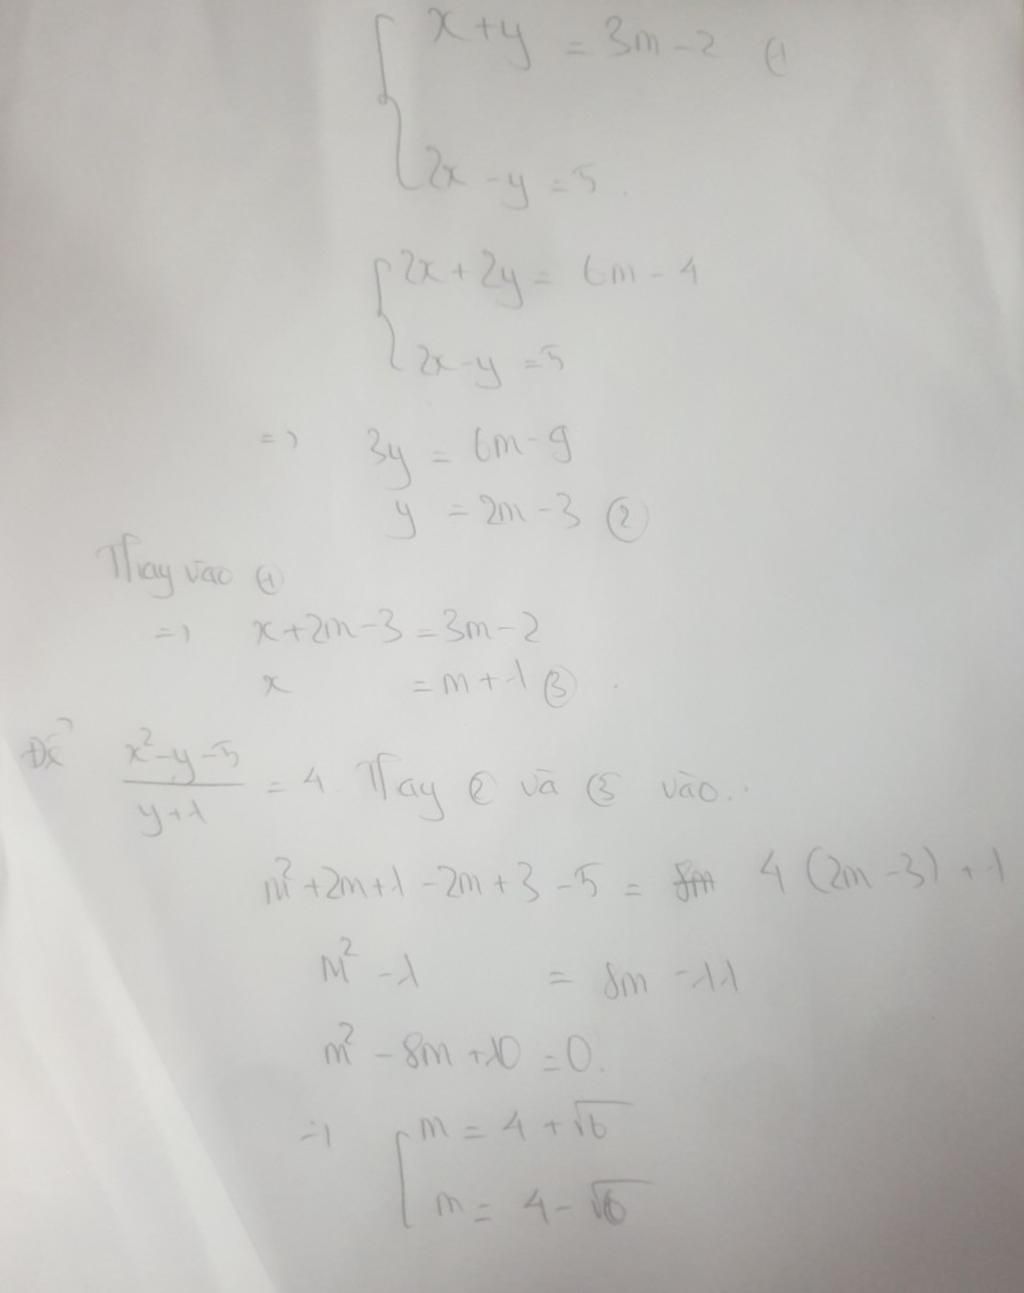 x+y = 3m-2 (1)
2x-y = 5.
2x+2y = 6m-4
2x-y = 5
=> 3y = 6m-9
y = 2m-3 (2)
Thay vào (1)
=> x+2m-3 = 3m-2
x = m+1 (3).
Để (x²-y-5)/(y+1) = 4. Thay (2) và (3) vào..
m²+2m+1-2m+3-5 = 8m 4(2m-3)+1
m²-1 = 8m-11
m²-8m+10 = 0.
=> m = 4+√6
m = 4-√6